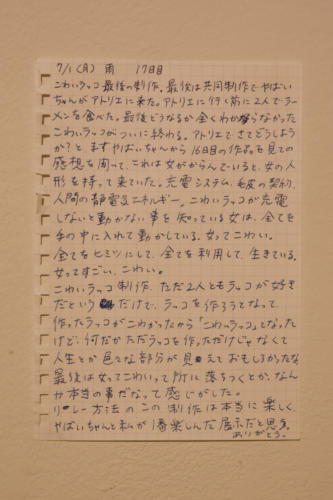 7/1(月) 雨 17日目
こわいラッコ最後の制作。最後は共同制作でやばい
ちゃんがアトリエに来た。アトリエに行く前に2人でラー
メンを食べた。最後どうなるか全くわからなかった
こわいラッコがついに終わる。アトリエでさてどうしよう
か?と、まずやばいちゃんから16日目の作品を見ての
感想を周って、これは女がからんでいると、女の人
形を持って来ていた。充電システム、毛皮の契約、
人間の静電気エネルギー。こわいラッコが充電
しないと動かない事を知っている女は、全てを
手の中に入れて動かしている。女ってこわい。
全てをヒミツにして、全てを利用して、生きている。
女ってすごい、こわい。
こわいラッコ制作、ただ2人ともラッコが好き
だという だけで、ラッコを作ろうとなって、
作ったラッコがこわかったから「こわいラッコ」となった
けど、何だかただラッコを作っただけじゃなくて
人生とか色々な部分が見えておもしろかったな
最後は女ってこわいって所に落ちつくとか、なん
か本当の事だなって感じがした。
リレー方法のこの制作は本当に楽しく、
やばいちゃんと私が1番楽しんだ展示だと思う。
ありがとう。